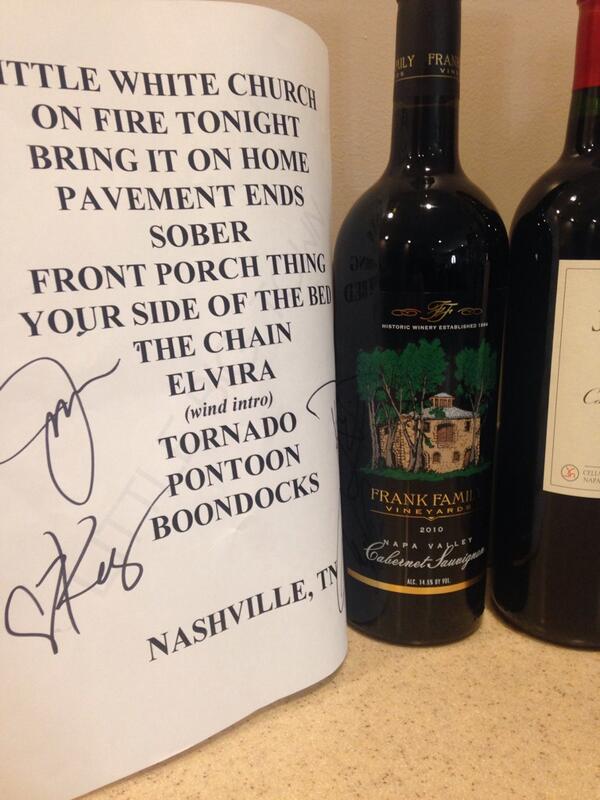 ITTLE WHITE CHURCH
ON FIRE TONIGHT
BRING IT ON HOME
PAVEMENT ENDS
SOBER
FRONT PORCH THING
YOUR SIDE OF THE BED
THE CHAIN
ELVIRA
(wind intro)
TORNADO
PONTOON
BOONDOCKS
NASHVILLE, TN
FRANK
HISTORIC WINERY ESTABLISHED 1884
FRANK FAMILY
VINEYARDS
2010
NAPA VALLEY
Cabernet Sauvignon
ALC. 14.5% BY VOL.
NAPA